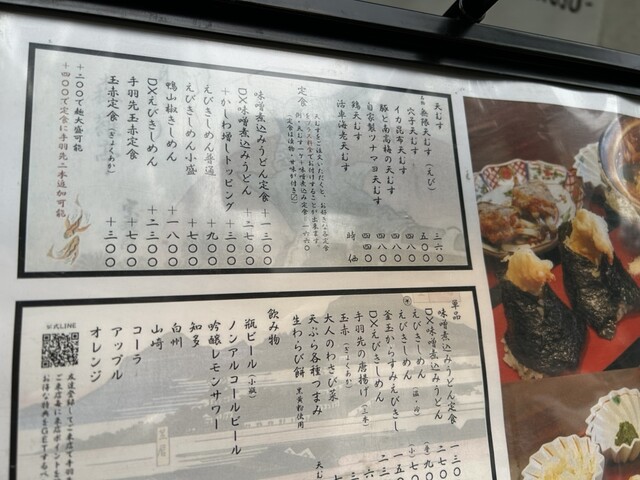 天むす
無限天むす（えび） 三六〇
穴子天むす 五〇〇
イカ昆布天むす 四八〇
豚と南高梅の天むす 四八〇
自家製ツナマヨ天むす 四四〇
鶏天むす 四四〇
活車海老天むす 時価
定食
味噌煮込みうどん定食 ＋一三〇〇
DX味噌煮込みうどん ＋二七〇〇
＋かしわ増しトッピング ＋三〇〇
えびきしめん普通 ＋九〇〇
えびきしめん小盛 ＋七〇〇
鴨山椒きしめん ＋一八〇〇
DXえびきしめん ＋二三〇〇
手羽先玉赤定食 ＋七〇〇
玉赤定食（ぎょくあか） ＋三〇〇
＋二〇〇で麺大盛可能
＋四〇〇で定食に手羽先二本追加可能
単品
味噌煮込みうどん定食 一三〇
DX味噌煮込みうどん 二七〇
えびきしめん
えびきしめん
釜玉からすみえびきし
DXえびきしめん
手羽先の唐揚げ
玉赤（ぎょくあか）
大人のわさび菜
天ぷら各種つまみ
生わらび餅 黒蜜粉使用
飲み物
瓶ビール（小瓶）
ノンアルコールビール
吟醸レモンサワー
知多
白州
山崎
コーラ
アップル
オレンジ
公式LINE
友達登録して
ご来店毎に来店ポイントを
お得な特典をGETするべ